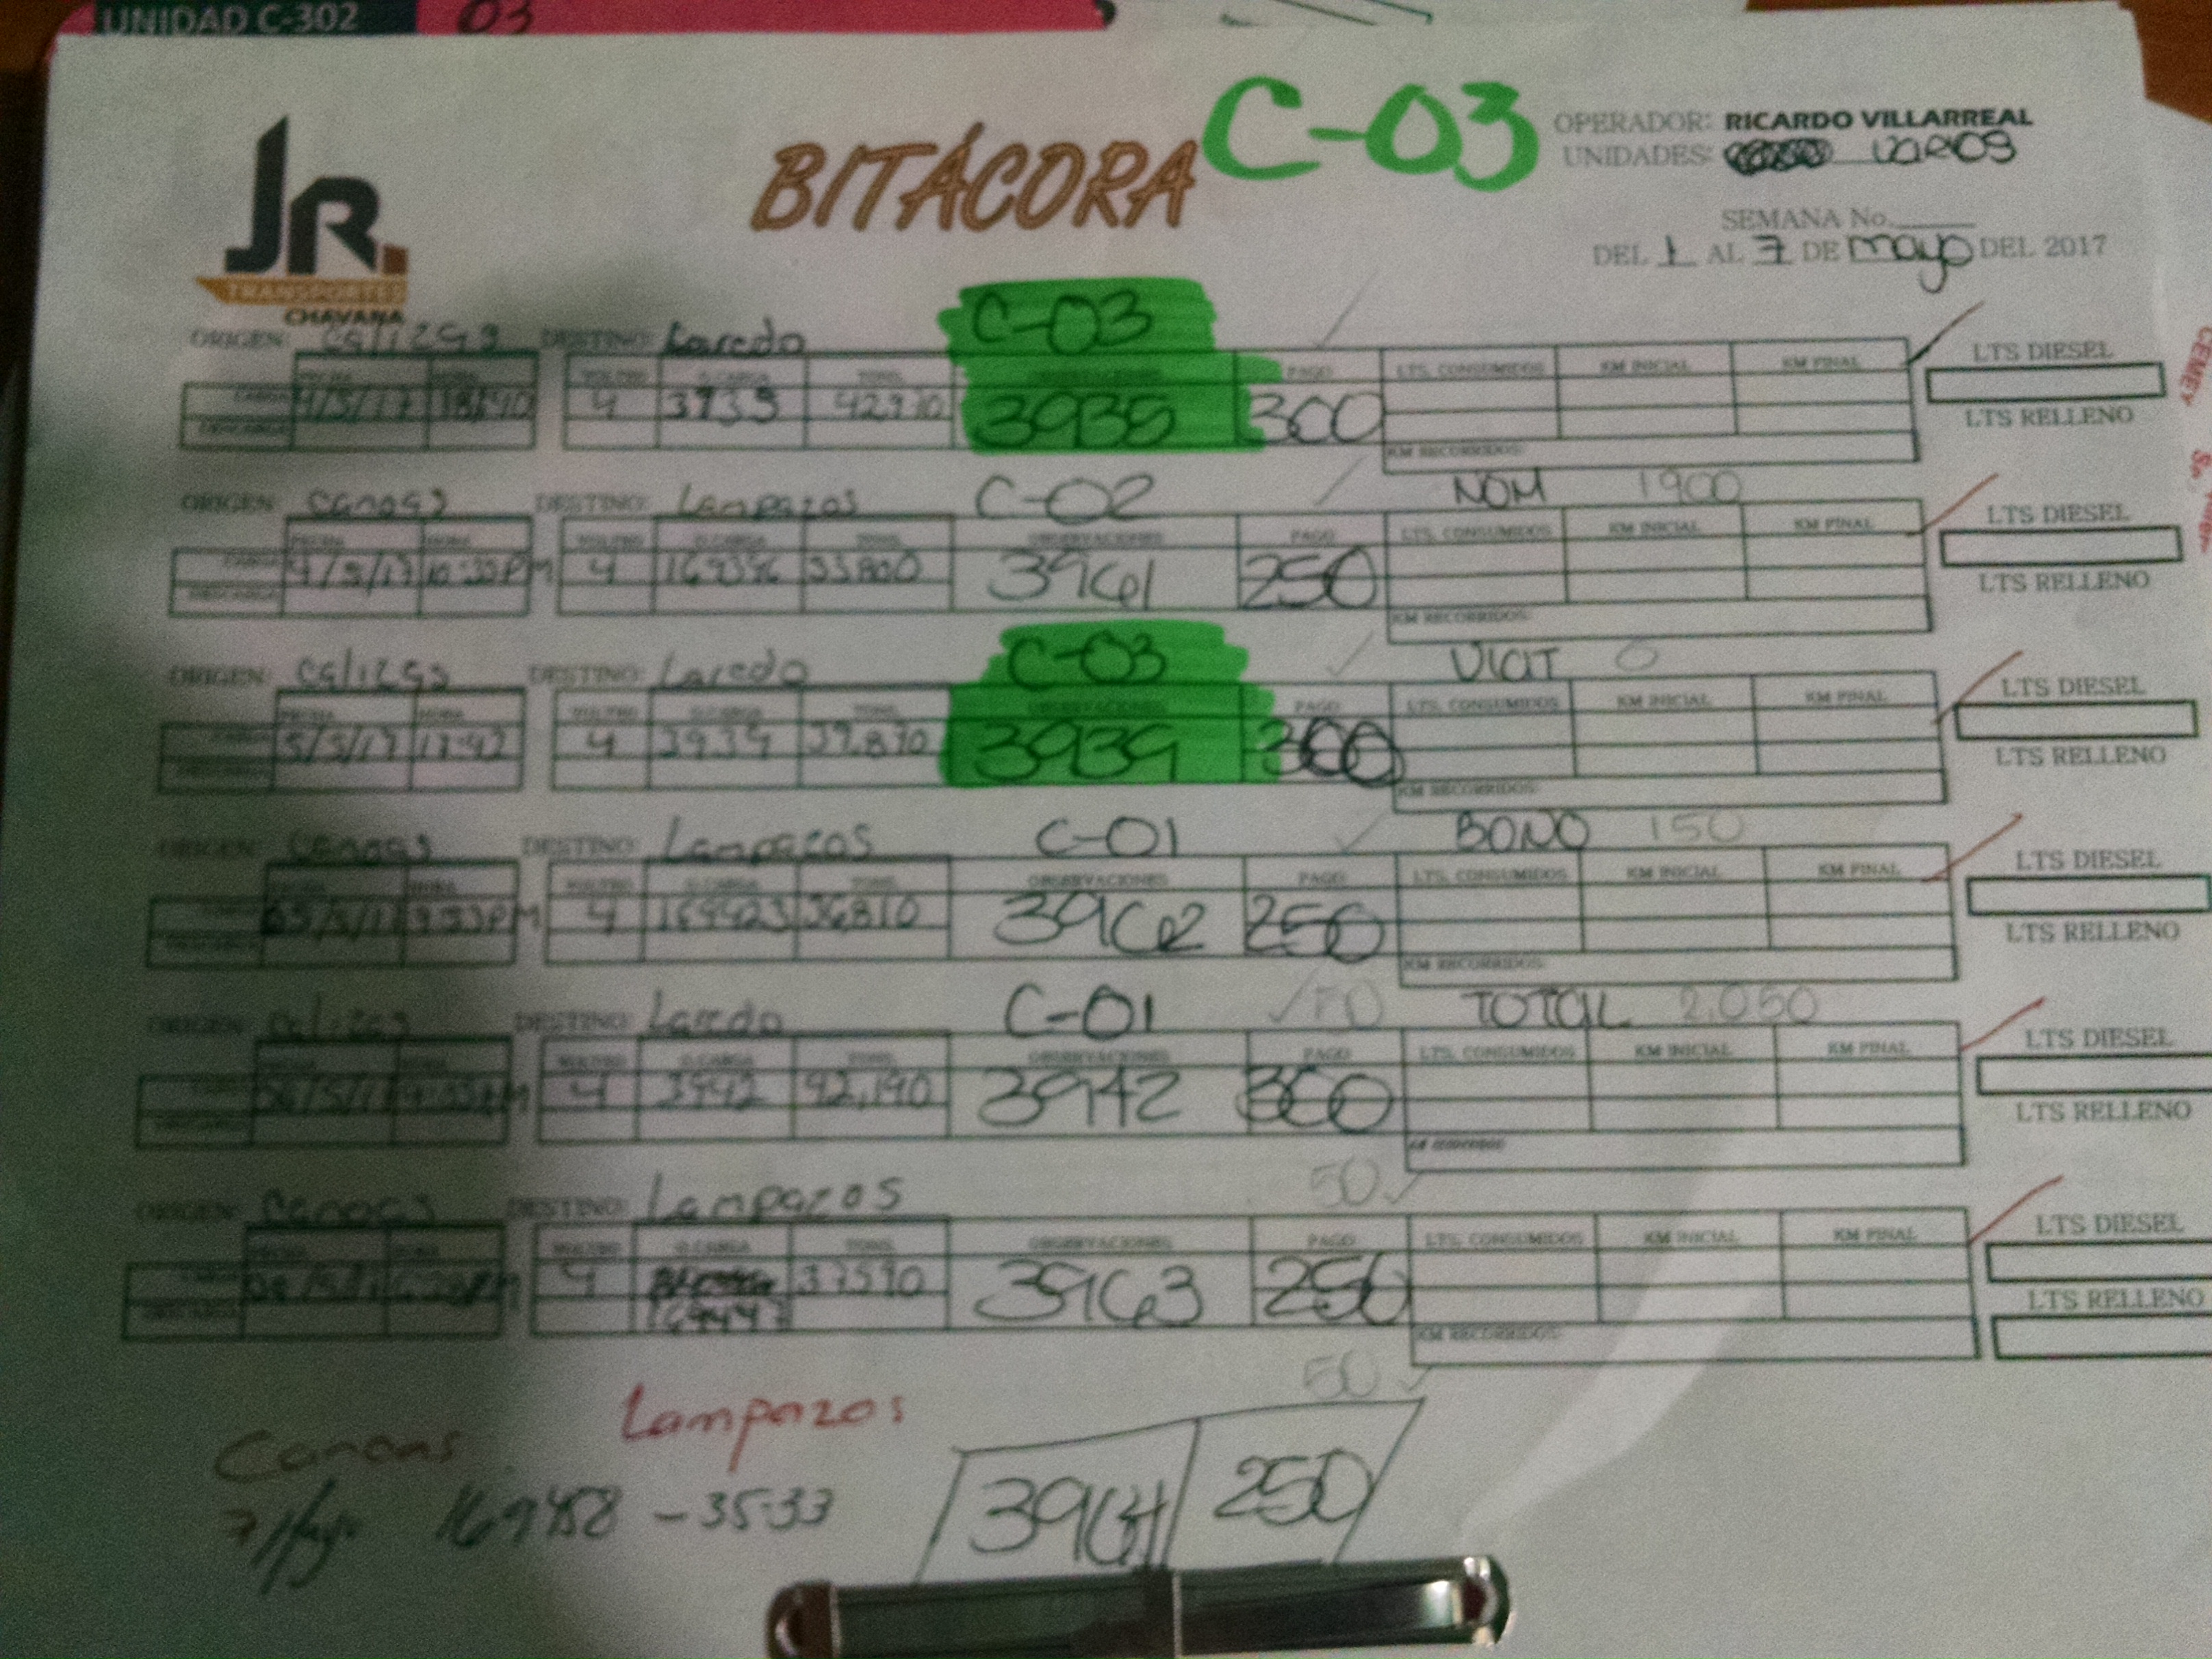 UNIDAD C-302 03
BITÁCORA C-03
OPERADOR: RICARDO VILLARREAL
UNIDADES: varios
JR.
TRANSPORTES
CHAVANA
SEMANA No.
DEL 1 AL 7 DE mayo DEL 2017
ORIGEN: calizas DESTINO: Laredo C-03
FECHA HORA VOLTEO O.CARGA TONS. OBSERVACIONES PAGO LTS. CONSUMIDOS KM INICIAL KM FINAL LTS DIESEL
CARGA 4/5/17 4 3935 3935 300
DESCARGA LTS RELLENO
KM RECORRIDOS:
ORIGEN: canoas DESTINO: Lampazos C-02 NOM 1900
FECHA HORA VOLTEO O.CARGA TONS. OBSERVACIONES PAGO LTS. CONSUMIDOS KM INICIAL KM FINAL LTS DIESEL
CARGA 4/5/17 10:35PM 4 3961 250
DESCARGA LTS RELLENO
KM RECORRIDOS:
ORIGEN: calizas DESTINO: Laredo C-03 VICIT 0
FECHA HORA VOLTEO O.CARGA TONS. OBSERVACIONES PAGO LTS. CONSUMIDOS KM INICIAL KM FINAL LTS DIESEL
CARGA 5/5/17 17:42 4 3939 39,870 3939 300
DESCARGA LTS RELLENO
KM RECORRIDOS:
ORIGEN: canoas DESTINO: Lampazos C-01 BONO 150
FECHA HORA VOLTEO O.CARGA TONS. OBSERVACIONES PAGO LTS. CONSUMIDOS KM INICIAL KM FINAL LTS DIESEL
CARGA 4 169423 36,810 3962 250
DESCARGA LTS RELLENO
KM RECORRIDOS:
ORIGEN: calizas DESTINO: Laredo C-01 TOTAL 2,050
FECHA HORA VOLTEO O.CARGA TONS. OBSERVACIONES PAGO LTS. CONSUMIDOS KM INICIAL KM FINAL LTS DIESEL
CARGA 4 3942 42,190 3942 300
DESCARGA LTS RELLENO
50
ORIGEN: canoas DESTINO: Lampazos
FECHA HORA VOLTEO O.CARGA TONS. OBSERVACIONES PAGO LTS. CONSUMIDOS KM INICIAL KM FINAL LTS DIESEL
CARGA 4 37590 3963 250
DESCARGA 169447 LTS RELLENO
KM RECORRIDOS:
50
Canoas Lampazos
7/Mayo 169458 - 35.33 3964 250